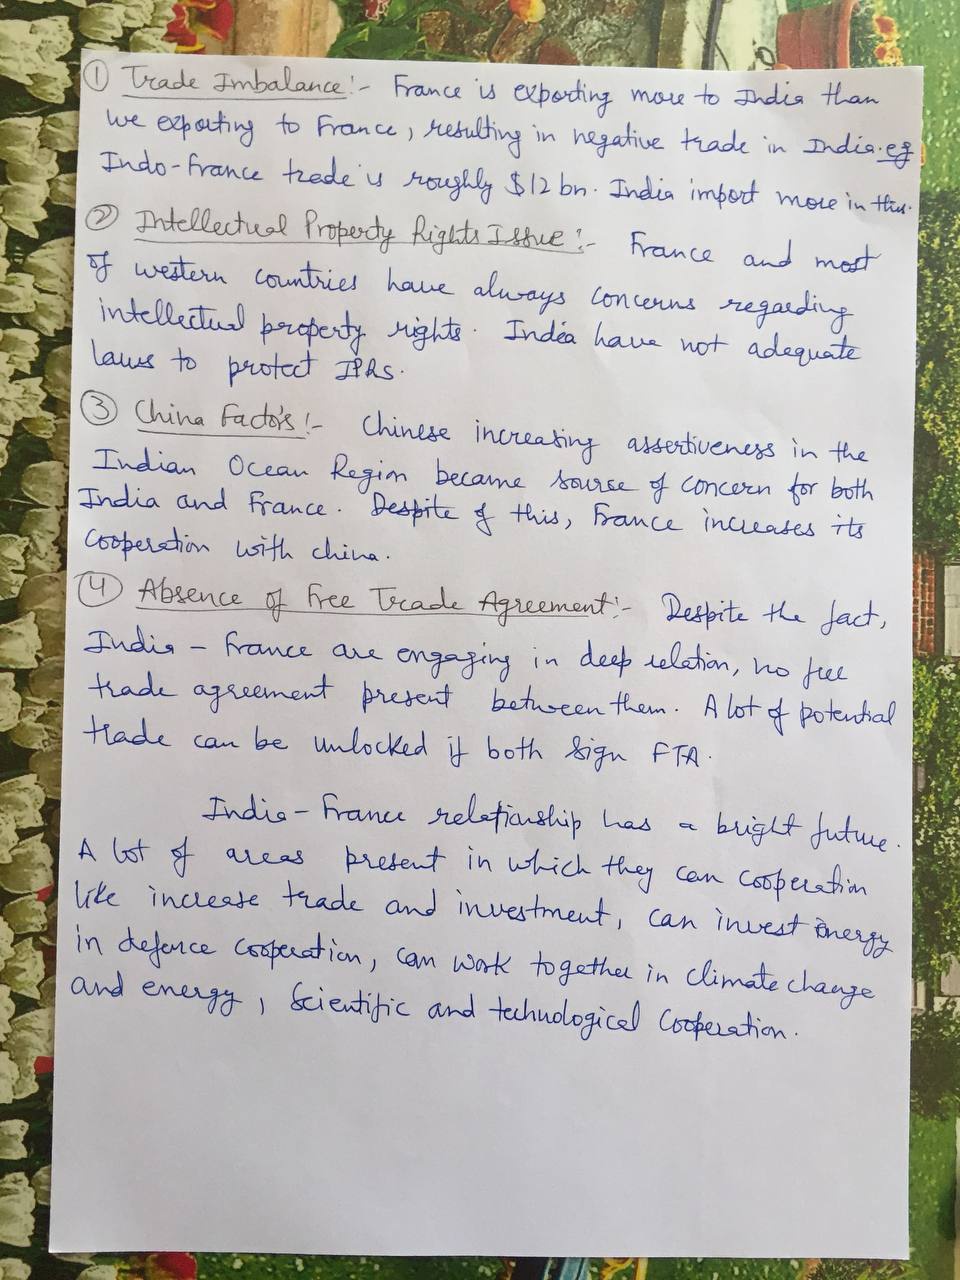 ① Trade Imbalance:- France is exporting more to India than
we exporting to France, resulting in negative trade in India. eg
Indo-France trade is roughly $12 bn. India import more in this.
② Intellectual Property Rights Issue:- France and most
of western countries have always concerns regarding
intellectual property rights. India have not adequate
laws to protect IPRs.
③ China Factors:- Chinese increasing assertiveness in the
Indian Ocean Region became source of concern for both
India and France. Despite of this, France increases its
cooperation with china.
④ Absence of Free Trade Agreement:- Despite the fact,
India - France are engaging in deep relation, no free
trade agreement present between them. A lot of potential
trade can be unlocked if both sign FTA.
India - France relationship has a bright future.
A lot of areas present in which they can cooperation
like increase trade and investment, can invest energy
in defence cooperation, can work together in climate change
and energy, scientific and technological cooperation.